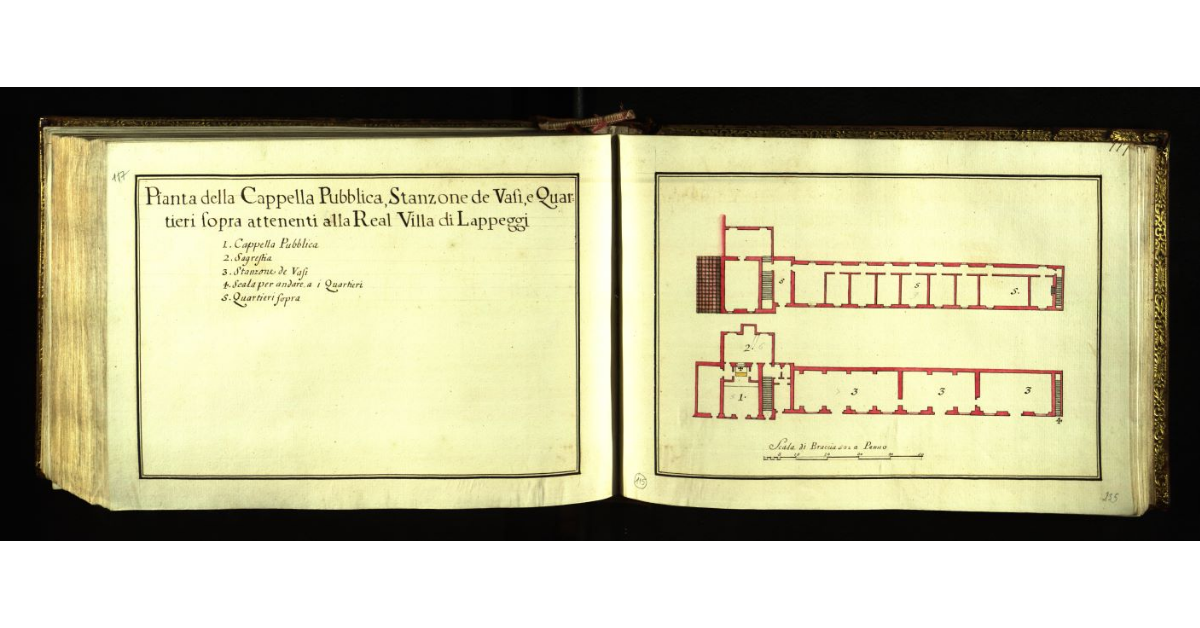 117
Pianta della Cappella Pubblica, Stanzone de Vasi, e Quar-
tieri sopra attenenti alla Real Villa di Lappeggi
1. Cappella Pubblica
2. Sagrestia
3. Stanzone de Vasi
4. Scala per andare a i Quartieri
5. Quartieri sopra
5
5
5.
2.
1.
3
3
3
Scala di Braccia a Panno